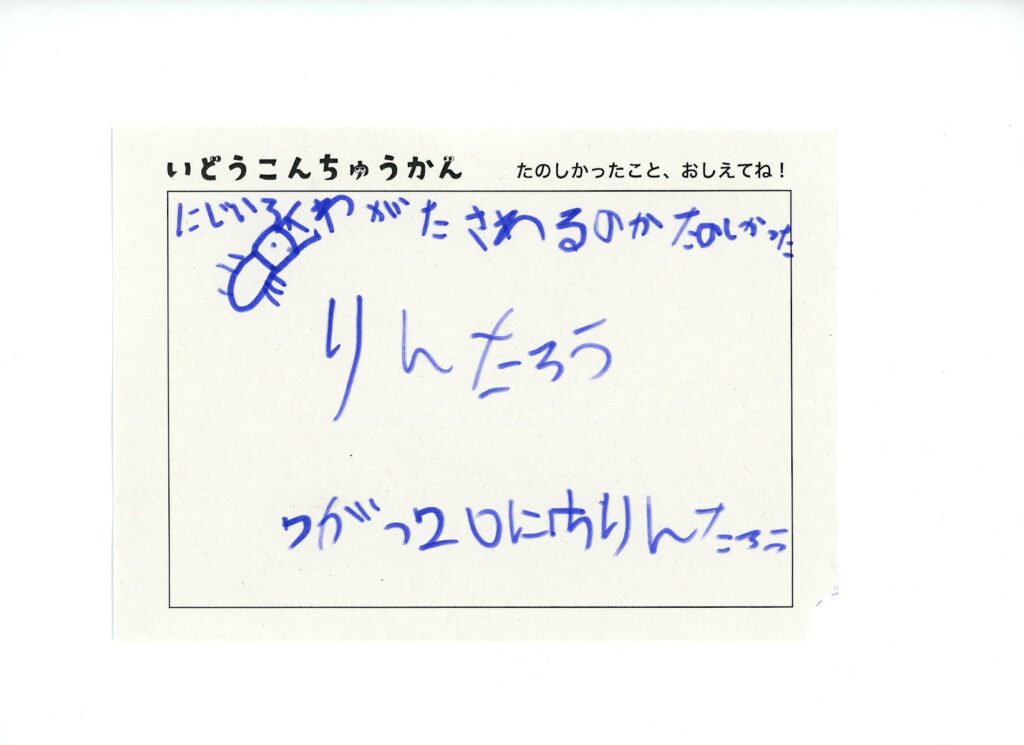 いどうこんちゅうかん たのしかったこと、おしえてね！
にじいろくわがたさわるのがたのしかった
りんたろう
7がつ20にちりんたろう